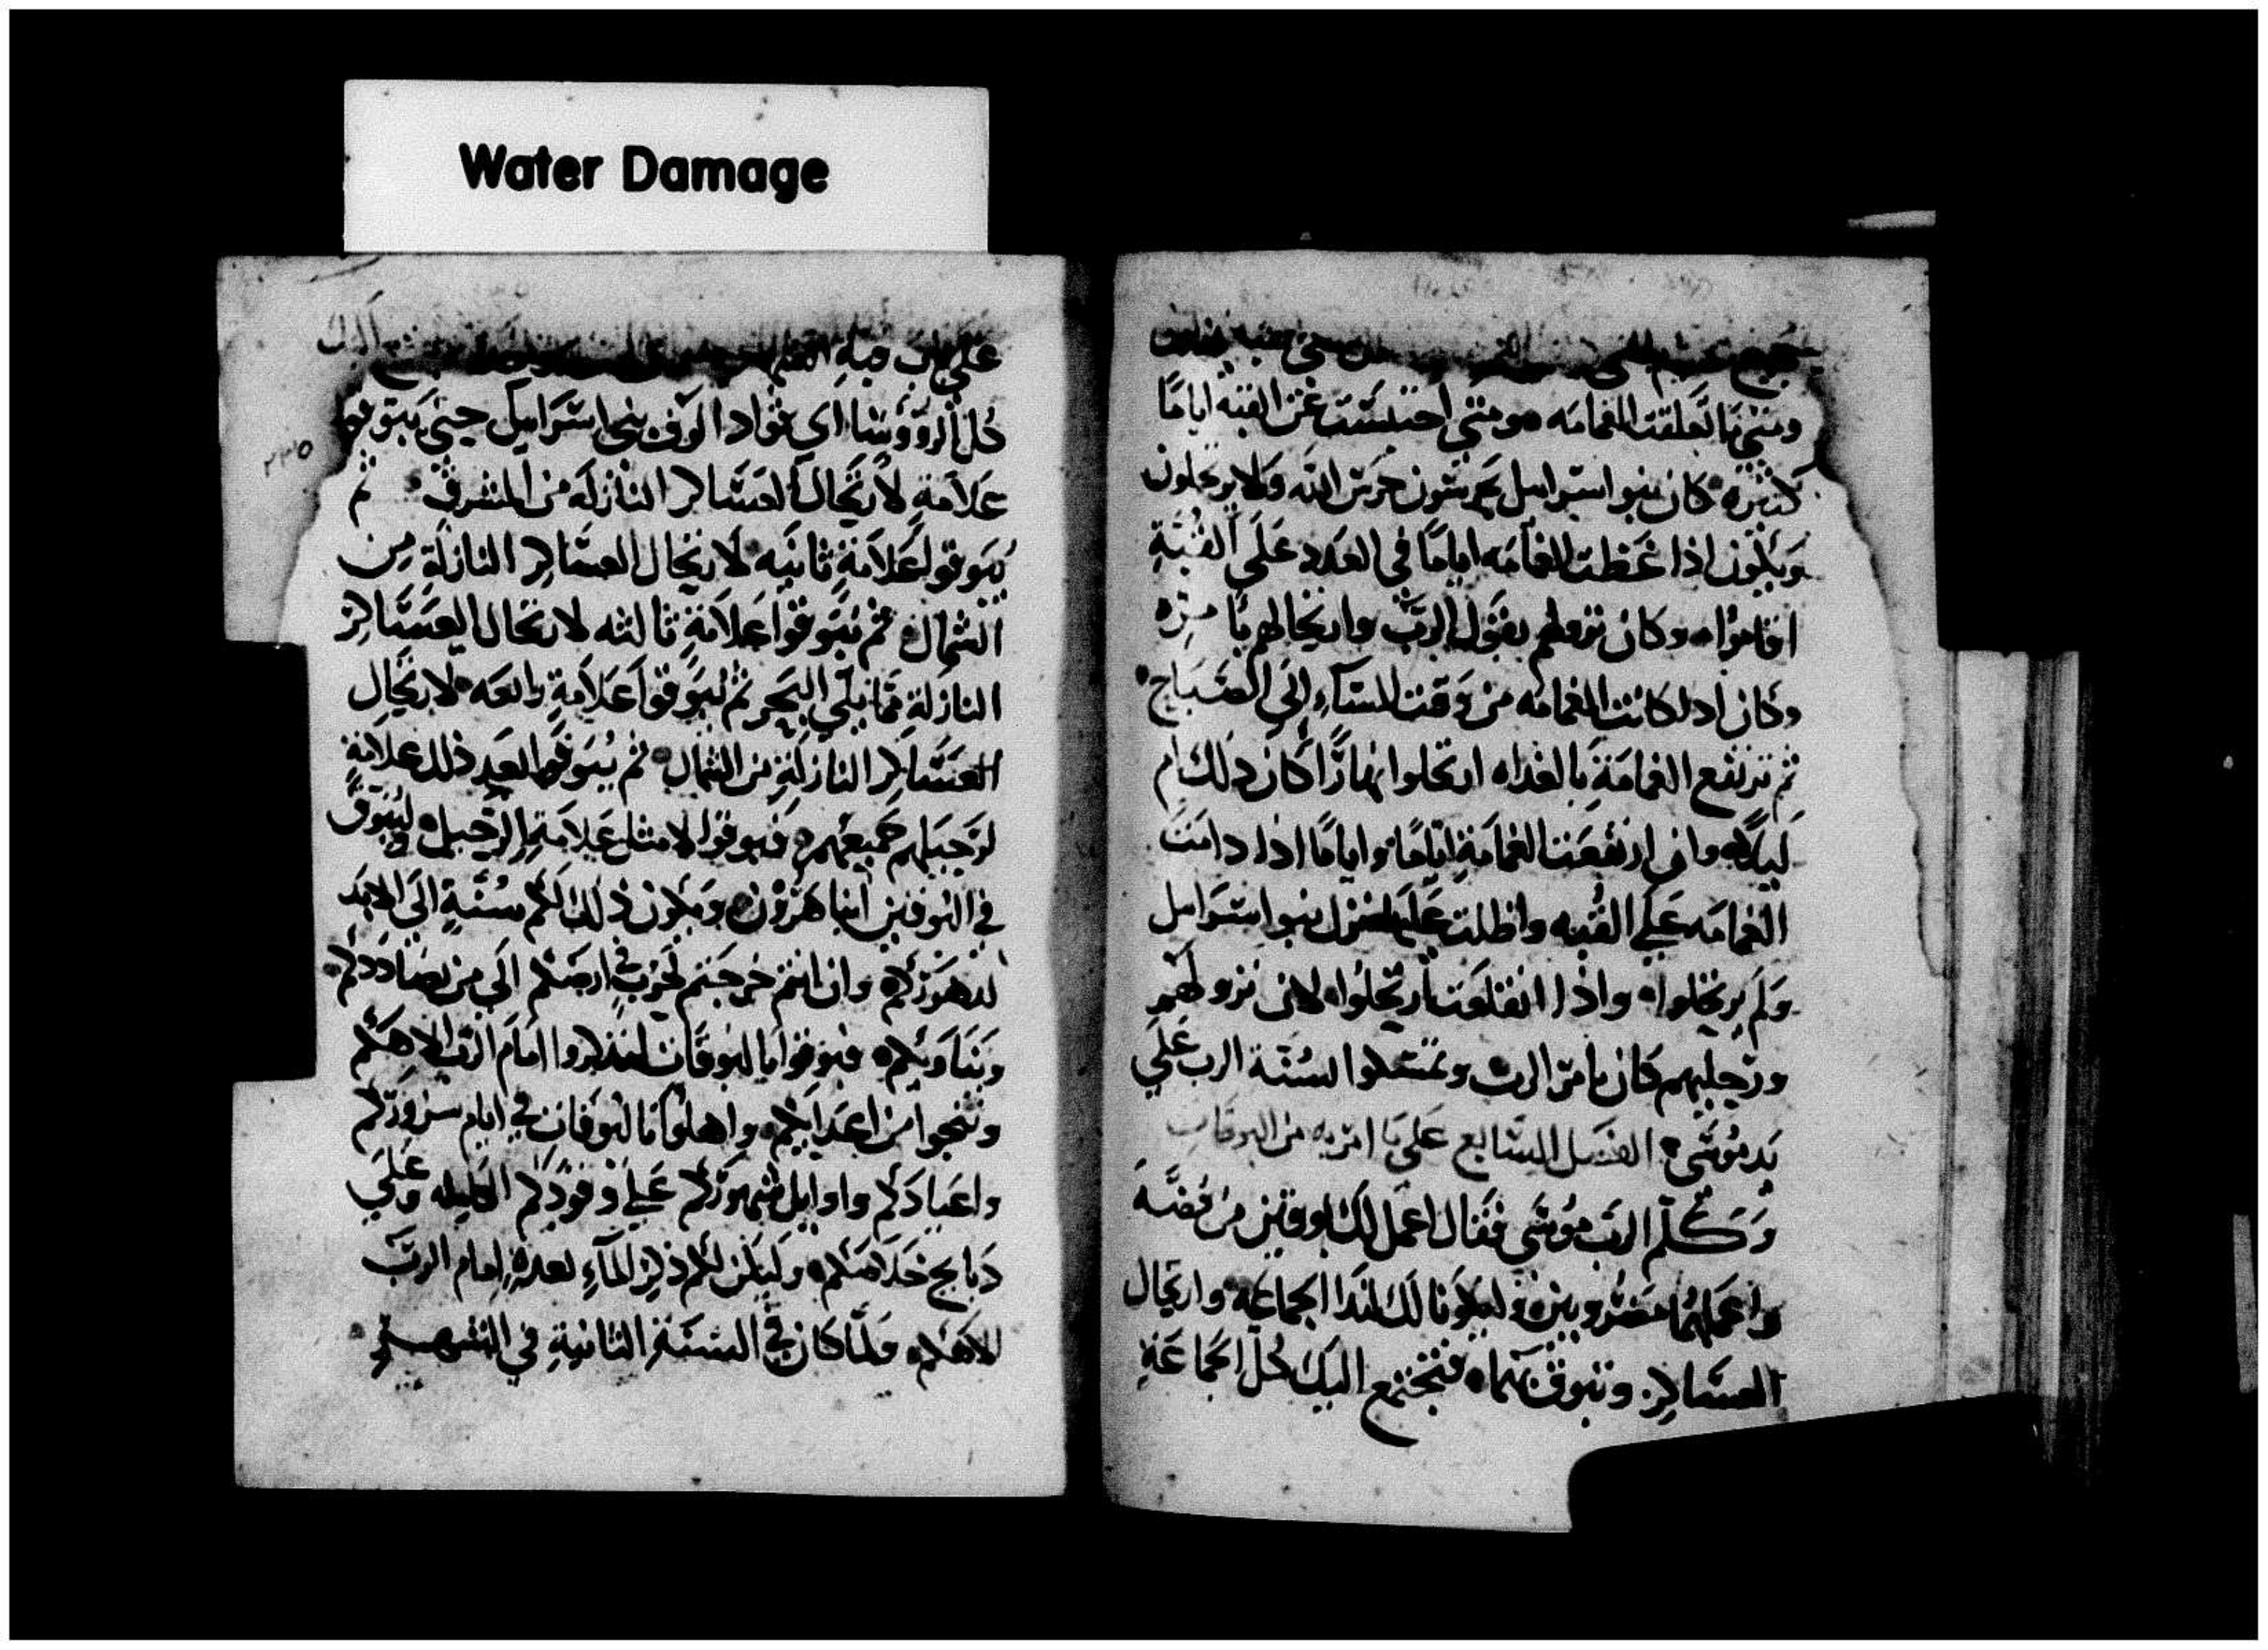 Water Damage
ومتي ما تعلقت الغمامه ومتي احتبست عن القبه اياما
كثيره كان بنو اسرايل يحرسون حرس الله ولا يرتحلون
ويكون اذا غطت الغمامه اياما في العدد علي القبة
اقاموا وكان نزولهم بقول الرب وارتحالهم بامره
وكان اذا كانت الغمامه من وقت المساء الي الصباح
ثم ترتفع الغمامة بالغداه ارتحلوا نهارا كان ذلك ام
ليلا وان ارتفعت الغمامة اياما واياما اذا دامت
الغمامه علي القبه واظلت عليها نزل بنو اسرايل
ولم يرتحلوا واذا انقلعت ارتحلوا لان نزولهم
ورحيلهم كان بامر الرب وتمسكوا بسنة الرب علي
يد موسي الفصل السابع علي ما امر به من البوقات
وكلم الرب موسي فقال اعمل لك بوقين من فضه
واعملهما مضروبين وليكونا لك لندا الجماعه وارتحال
العساكر وتبوق بهما فتجتمع اليك كل الجماعة
علي باب قبة
كل الرووسا اي قواد الوف بني اسرايل حتي يبوقوا
علامة لارتحال العساكر النازلة من المشرق ثم
يبوقوا علامة ثانيه لارتحال العساكر النازلة من
الشمال ثم يبوقوا علامة ثالثه لارتحال العساكر
النازلة مما يلي البحر ثم يبوقوا علامة رابعه لارتحال
العساكر النازلة من الشمال ثم يبوقوا بعد ذلك علامة
لرحيلهم جميعهم فيبوقوا لا مثل علامة الرحيل وليبوق
في البوقين ابنا هرون ويكون ذلك لكم سنة الي الابد
لدهوركم وان انتم خرجتم لحرب في ارضكم الي من يضاددكم
ويناويكم فبوقوا بالبوقات لتذكروا امام الرب الاهكم
وتنجوا من اعدايكم واهلوا بالبوقات في ايام سروركم
واعيادكم واوايل شهوركم علي وقودكم الكليله وعلي
دبايح خلاصكم وليكن لكم ذكر الماء بعده امام الرب
الاهكم ولما كان في السنة الثانية في الشهر
٢٣٥